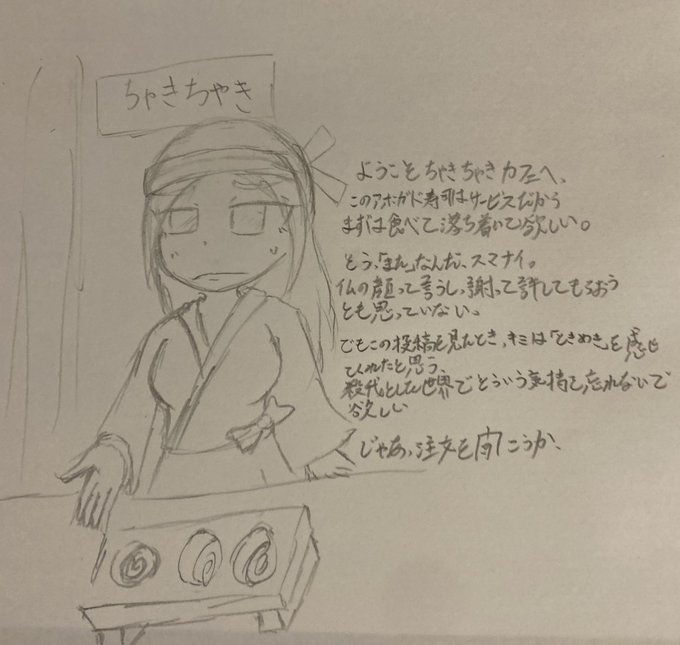 ちゃきちゃき
ようこそちゃきちゃきカフェへ、
このアボガド寿司はサービスだから
まずは食べて落ち着いて欲しい。
そう、「また」なんだ、スマナイ。
仏の顔って言うし、謝って許してもらおう
とも思っていない、
でもこの投稿を見たとき、キミは「ときめき」を感じ
てくれたと思う、
殺伐とした世界でそういう気持を忘れないで
欲しい
じゃあ、注文を聞こうか、